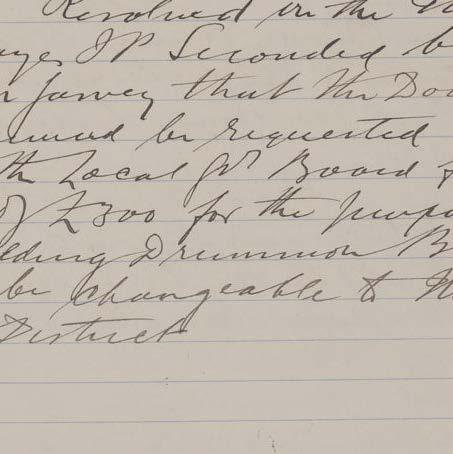 Resolved in the
J P Seconded
that the
be requested
the Local Gvt Board
of £300 for the purpo
lding Drummon B
be changeable to
District